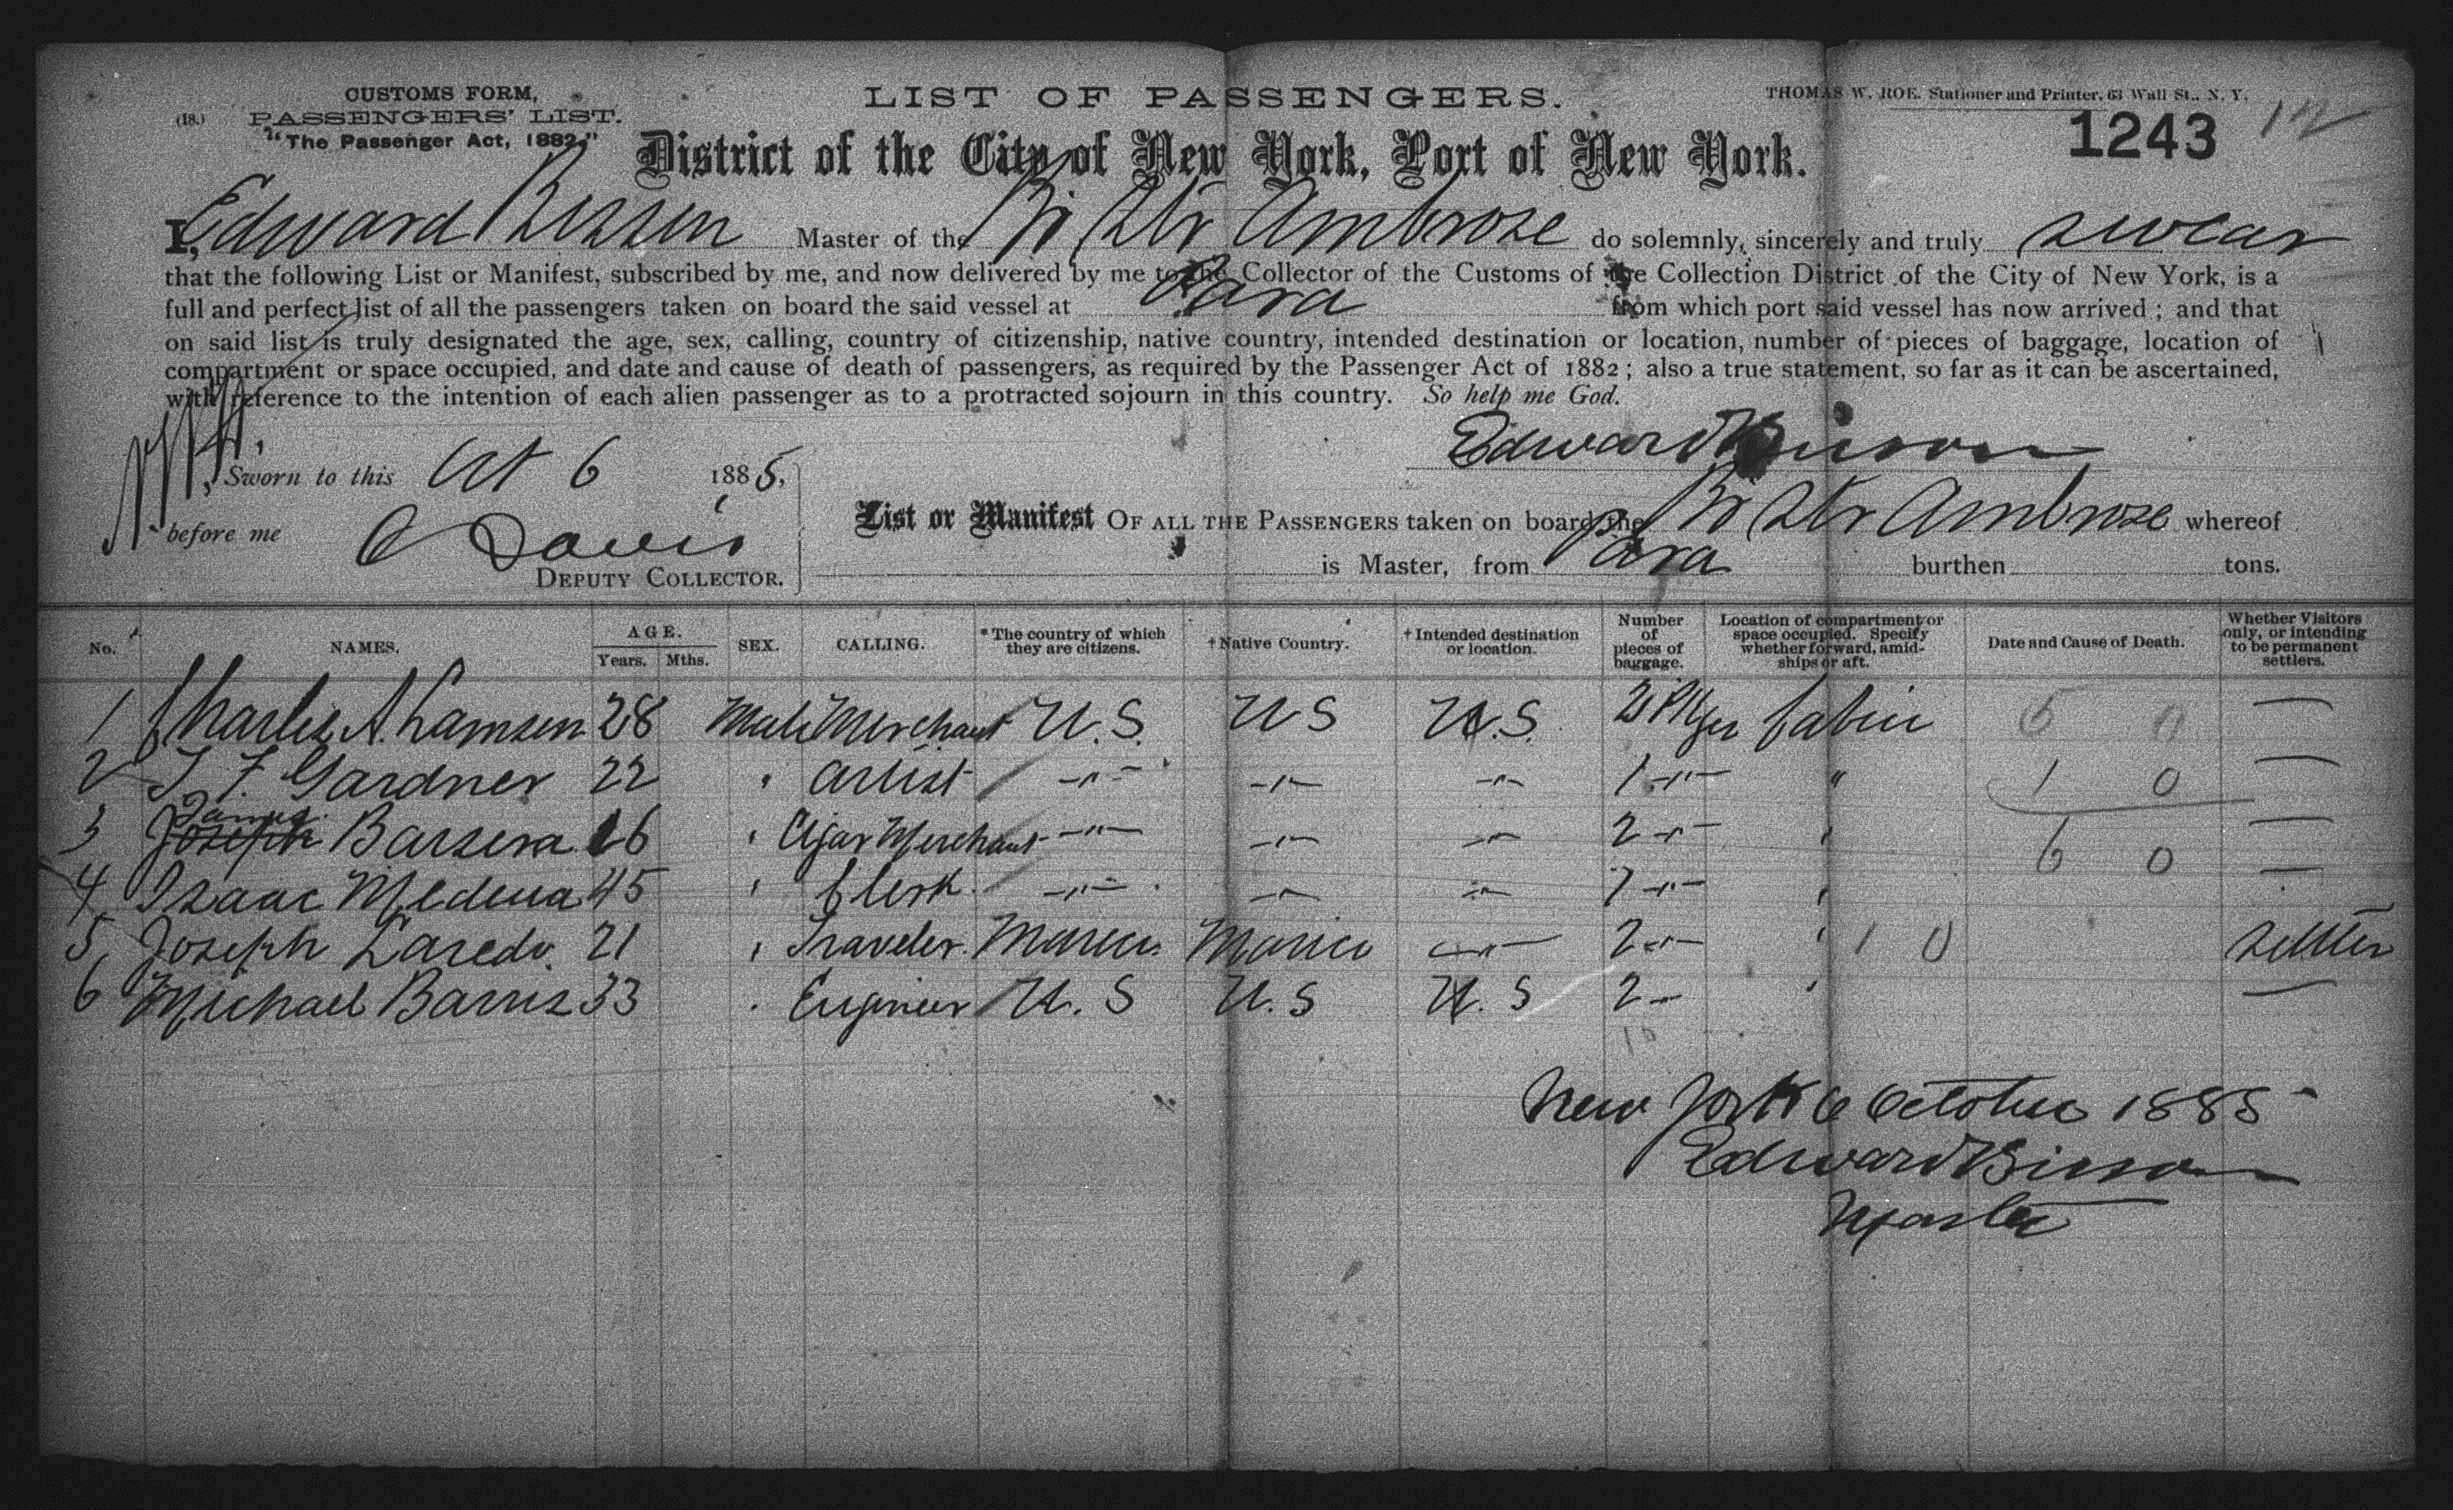 CUSTOMS FORM,
(18.) PASSENGERS' LIST.
"The Passenger Act, 1882."
LIST OF PASSENGERS.
THOMAS W. ROE, Stationer and Printer, 63 Wall St., N. Y.
1243
District of the City of New York, Port of New York.
I, Edward Bisson Master of the Br Str Ambrose do solemnly, sincerely and truly swear
that the following List or Manifest, subscribed by me, and now delivered by me to the Collector of the Customs of the Collection District of the City of New York, is a
full and perfect list of all the passengers taken on board the said vessel at Para from which port said vessel has now arrived; and that
on said list is truly designated the age, sex, calling, country of citizenship, native country, intended destination or location, number of pieces of baggage, location of
compartment or space occupied, and date and cause of death of passengers, as required by the Passenger Act of 1882; also a true statement, so far as it can be ascertained,
with reference to the intention of each alien passenger as to a protracted sojourn in this country. So help me God.
Edward Bisson
Sworn to this Oct 6 1885,
before me C Davis
DEPUTY COLLECTOR.
List or Manifest OF ALL THE PASSENGERS taken on board the Br Str Ambrose whereof
is Master, from Para burthen tons.
No. NAMES. AGE. Years. Mths. SEX. CALLING. *The country of which they are citizens. †Native Country. †Intended destination or location. Number of pieces of baggage. Location of compartment or space occupied. Specify whether forward, amidships or aft. Date and Cause of Death. Whether Visitors only, or intending to be permanent settlers.
1 Charles A. Lamsen 28 Male Merchant U.S. U S U.S. Cabin 5 0 —
2 T F. Gardner 22 " Artist —"— —"— —"— 1 —"— " 1 0 —
3 Joseph James Barsera 26 " Cigar Merchant —"— —"— —"— 2 —"— " 6 0 —
4 Isaac Medina 45 " Clerk —"— —"— —"— 7 —"— " —
5 Joseph Laredo 21 " Traveler —"— 2 —"— " 1 0 Settler
6 Michael Barris 33 " Engineer U. S U. S U. S 2 — " —
10
New York 6 October 1885
Edward Bisson
Master